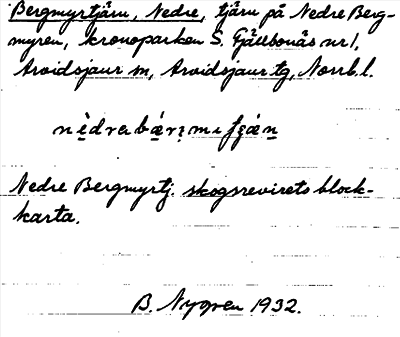 Bergmyrtjärn, Nedre, tjärn på Nedre Berg-
myren, kronoparken S. Fjällbonäs nr 1,
Arvidsjaur sn, Arvidsjaur tg, Norrb. l.
Nedre Bergmyrtj. skogsrevirets block-
karta.
B. Nygren 1932.